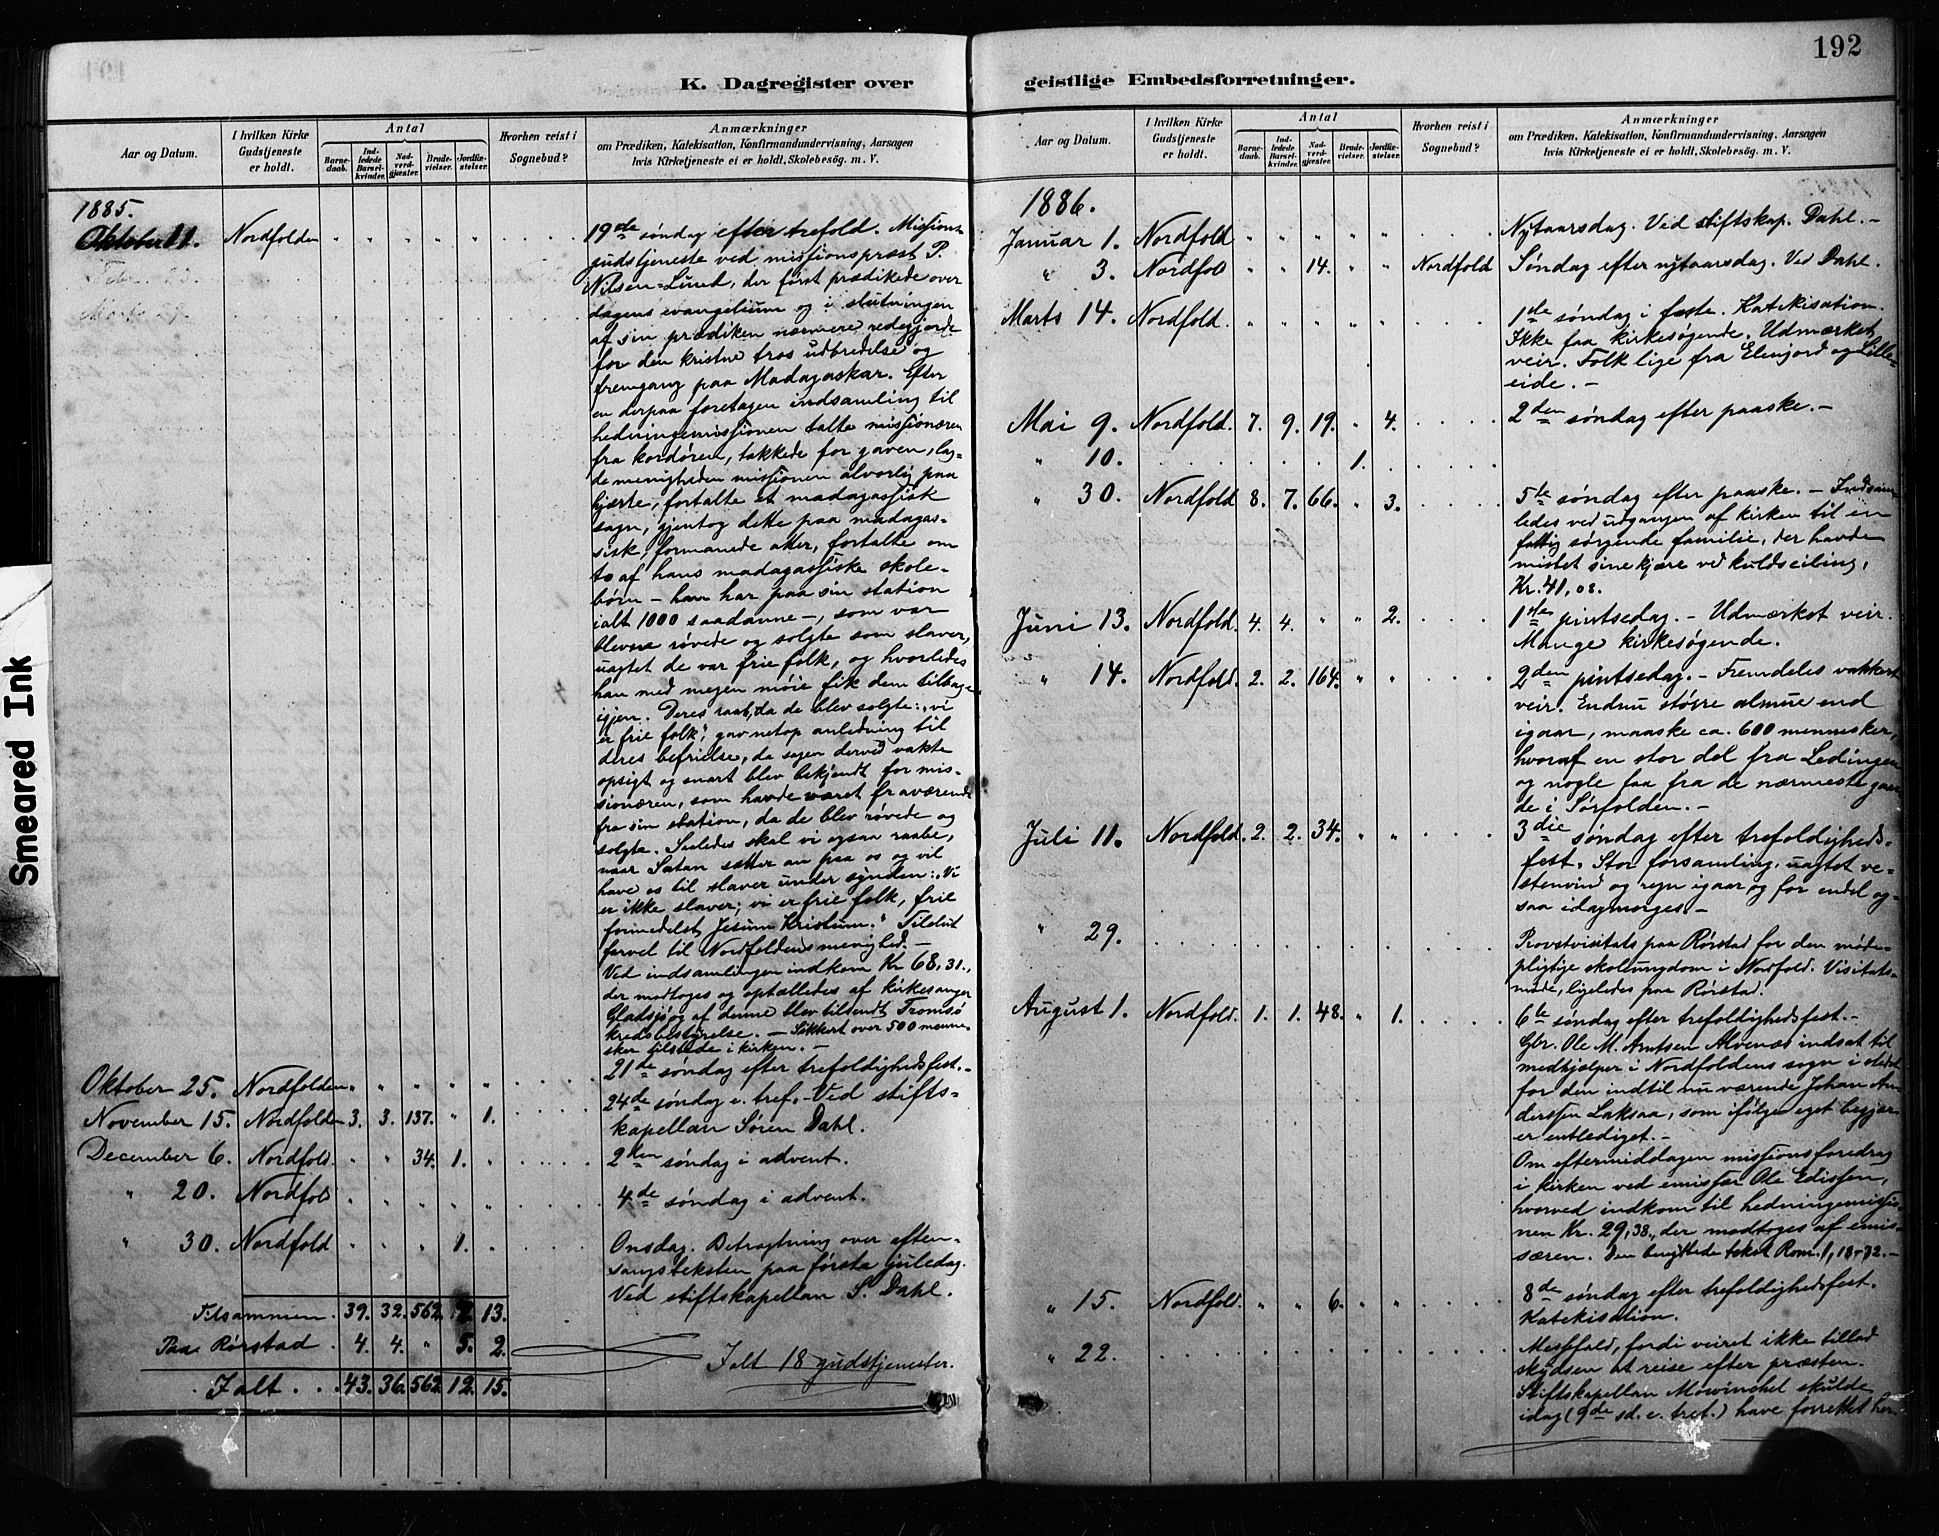 192
K. Dagregister over
geistlige Embedsforretninger.
Aar og Datum.
I hvilken Kirke Gudstjeneste er holdt.
Antal
Barne-daab.
Ind-ledede Barsel-kvinder.
Nad-verd-gjæster.
Brude-vielser.
Jordfæ-stelser.
Hvorhen reist i Sognebud?
Anmærkninger
om Prædiken, Katekisation, Konfirmandundervisning, Aarsagen
hvis Kirketjeneste ei er holdt, Skolebesög. m. V.
1885.
Oktober 11. Nordfolden " " " " " 19de søndag efter trefold. Missions-
gudstjeneste ved missionsprest P.
Nilsen-Lund, der først prædikede over
dagens evangelium og i slutningen
af sin prædiken nærmere redegjorde
for den kristne tros udbredelse og
fremgang paa Madagaskar. Efter
en derpaa foretagen indsamling til
hedningemissionen talte missionæren
fra kordøren, takkede for gaven, lag-
de menigheden missionen alvorlig paa
hjerte, fortalte et madagassisk
sagn, gjentog dette paa madagas-
sisk, formanede atter, fortalte om
to af hans madagassiske skole-
børn – han har paa sin station
ialt 1000 saadanne –, som var
blevne røvede og solgte som slaver,
uagtet de var frie folk, og hvorledes
han med megen møie fik dem tilbage
igjen. Deres raab, da de blev solgte: "vi
er frie folk", gav netop anledning til
deres befrielse, da sagen derved vakte
opsigt og snart blev bekjendt for mis-
sionæren, som havde været fraværende
fra sin station, da de blev røvede og
solgte. Saaledes skal vi ogsaa raabe,
naar Satan sætter an paa os og vil
have os til slaver under synden: "Vi
er ikke slaver; vi er frie folk, frie
formedelst Jesum Kristum." Tilslut
farvel til Nordfoldens menighed. –
Ved indsamlingen indkom Kr 68,31.,
der modtoges og optælledes af kirkesanger
Gladsjø og af denne blev tilsendt Tromsø
kredsbestyrelse. – Sikkert over 500 menne-
sker tilstede i kirken. –
Oktober 25. Nordfolden " " " " " 21de søndag efter trefoldighedsfest. –
November 15. Nordfolden 3. 3. 137. " 1. 24de søndag e. tref. – Ved stifts-
kapellan Søren Dahl.
December 6. Nordfold. " " 34. 1. " 2den søndag i advent.
" 20. Nordfold " " " " " 4de søndag i advent.
" 30. Nordfold " " " 1. " Onsdag. Betragtning over aften-
sangsteksten paa første juledag.
Ved stiftskapellan S. Dahl.
Tilsammen. 39. 32. 562. 13.
Paa Rørstad. 4. 4. " 5. 2.
Ialt. . . 43. 36. 562. 12. 15.
Ialt 18 gudstjenester.
Aar og Datum.
I hvilken Kirke Gudstjeneste er holdt.
Antal
Barne-daab.
Ind-ledede Barsel-kvinder.
Nad-verd-gjæster.
Brude-vielser.
Jordfæ-stelser.
Hvorhen reist i Sognebud?
Anmærkninger
om Prædiken, Katekisation, Konfirmandundervisning, Aarsagen
hvis Kirketjeneste ei er holdt, Skolebesög. m. V.
1886.
Januar 1. Nordfold " " " " " Nytaarsdag. Ved stiftskap. Dahl. –
" 3. Nordfold " " 14. " " Nordfold Søndag efter nytaarsdag. Ved Dahl.
Marts 14. Nordfold. " " " " " 1de søndag i faste. Katekisation.
Ikke faa kirkesøgende. Udmærket
veir. Folk lige fra Elvnjord og Lille-
eide. –
Mai 9. Nordfold. 7. 9. 19. " 4. 2den søndag efter paaske. –
" 10. 1.
" 30. Nordfold 8. 7. 66. " 3. 5te søndag efter paaske. – Indsam-
ledes ved udgangen af kirken til en
fattig sørgende familie, der havde
mistet sine kjære ved kuldseiling,
Kr. 41,08.
Juni 13. Nordfold. 4. 4. " " 2. 1ste pintsedag. – Udmærket veir.
Mange kirkesøgende.
" 14. Nordfold. 2. 2. 164. " " 2den pintsedag. – Fremdeles vakkert
veir. Endnu større almue end
igaar, maaske ca. 600 mennesker,
hvoraf en stor del fra Ledingen
og nogle faa fra de nærmeste gaar-
de i Sørfolden. –
Juli 11. Nordfold. 2. 2. 34. " " 3die søndag efter trefoldigheds-
fest. Stor forsamling, uagtet ve-
stenvind og regn igaar og for endel og-
saa idagmorges. –
" 29. Provstvisitats paa Rørstad for den møde-
pligtige skoleungdom i Nordfold. Visitats-
møde, ligeledes paa Rørstad.
August 1. Nordfold. 1. 1. 48. " 1. 6te søndag efter trefoldighedsfest. –
Gbr. Ole M. Arntsen Alvenæs indsat til
medhjælper i Nordfoldens sogn i stedet
for den indtil nu værende Johan An-
dersen Laksaa, som ifølge eget begjær
er entlediget. –
Om eftermiddagen missionsforedrag
i kirken ved emissær Ole Edissen,
hvorved indkom til hedningemissio-
nen Kr. 29,38., der modtoges af emis-
særen. Den benyttede tekst Rom. 1, 18-32. –
" 15. Nordfold. " " 6. " " 8de søndag efter trefoldighedsfest.
Katekisation.
" 22. Messfald, fordi veiret ikke tillod
skydsen at reise efter præsten.
Stiftskapellan Mowinckel skulde
idag (9de sd. e. tref.) have forrettet her.
Smeared Ink